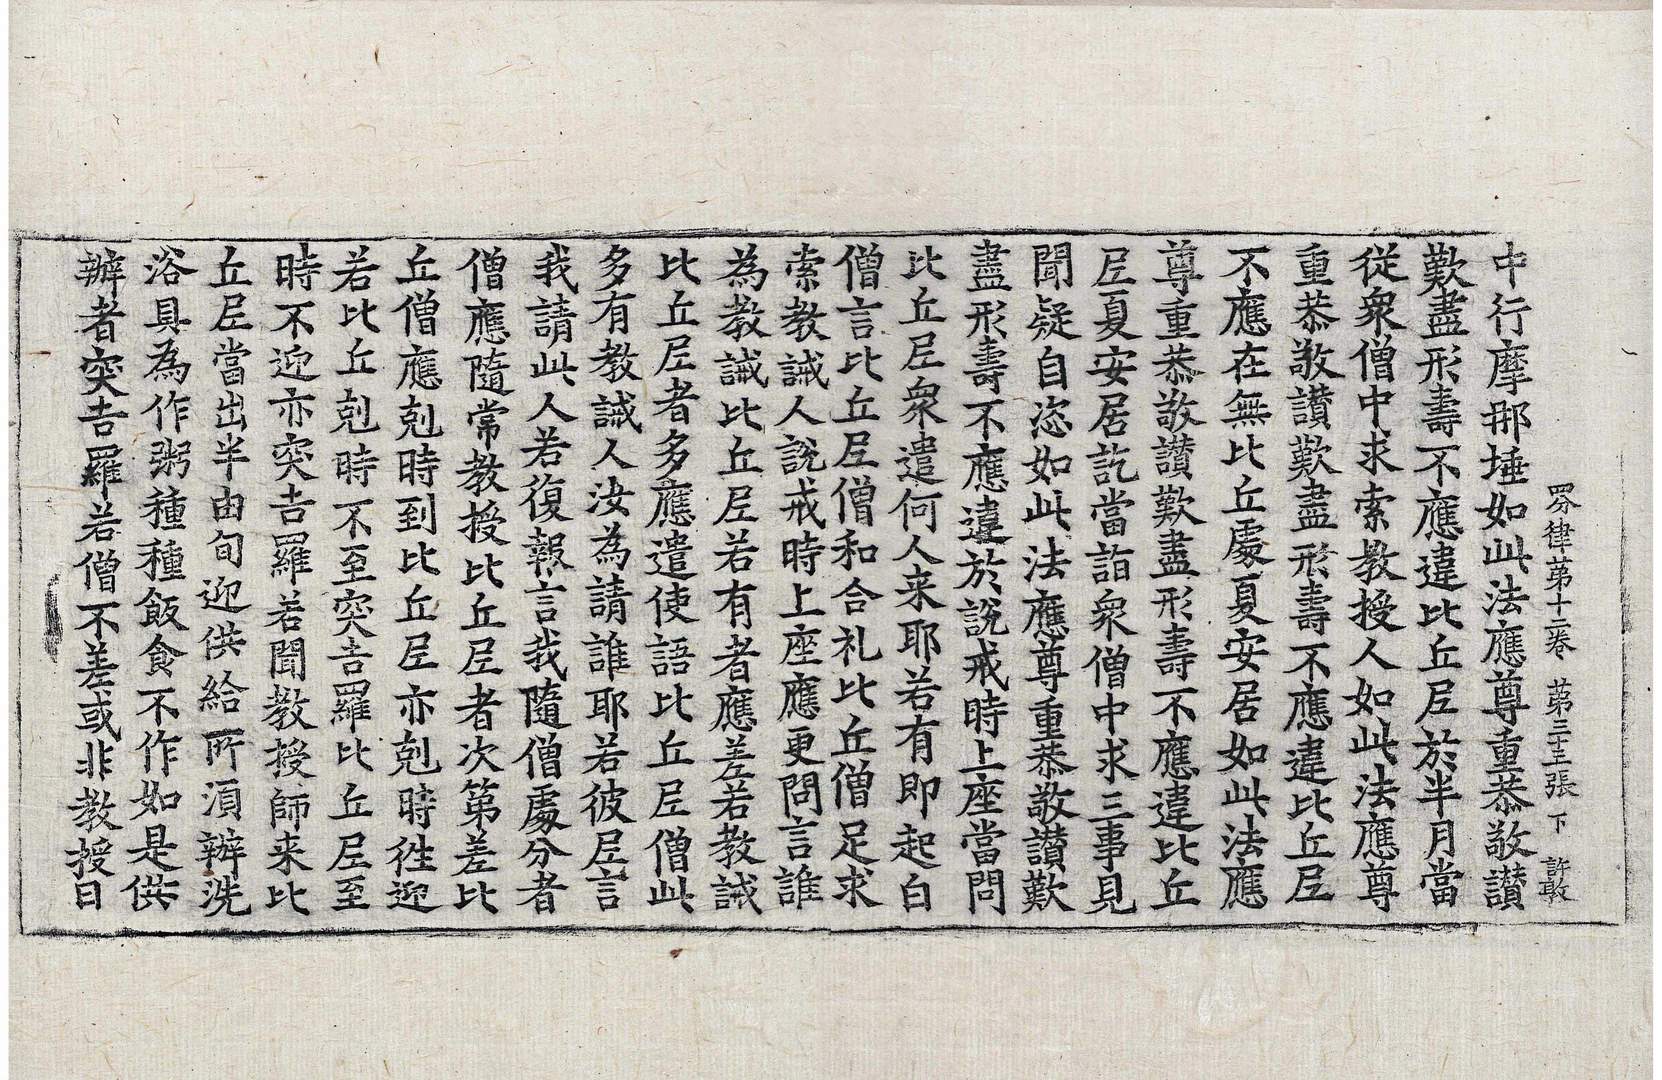 四分律第十二卷 第三十三張 下 許敦
中行摩那埵如此法應尊重恭敬讃
歎盡形壽不應違比丘尼於半月當
從衆僧中求索教授人如此法應尊
重恭敬讃歎盡形壽不應違比丘尼
不應在無比丘處夏安居如此法應
尊重恭敬讃歎盡形壽不應違比丘
尼夏安居訖當詣衆僧中求三事見
聞疑自恣如此法應尊重恭敬讃歎
盡形壽不應違於說戒時上座當問
比丘尼衆遣何人来耶若有即起白
僧言比丘尼僧和合礼比丘僧足求
索教誡人說戒時上座應更問言誰
為教誡比丘尼若有者應差若教誡
比丘尼者多應遣使語比丘尼僧此
多有教誡人汝為請誰耶若彼尼言
我請此人若復報言我隨僧處分者
僧應隨常教授比丘尼者次第差比
丘僧應剋時到比丘尼亦剋時徃迎
若比丘剋時不至突吉羅比丘尼至
時不迎亦突吉羅若聞教授師来比
丘尼當出半由旬迎供給所湏辦洗
浴具為作粥種種飯食不作如是供
辦者突吉羅若僧不差或非教授日